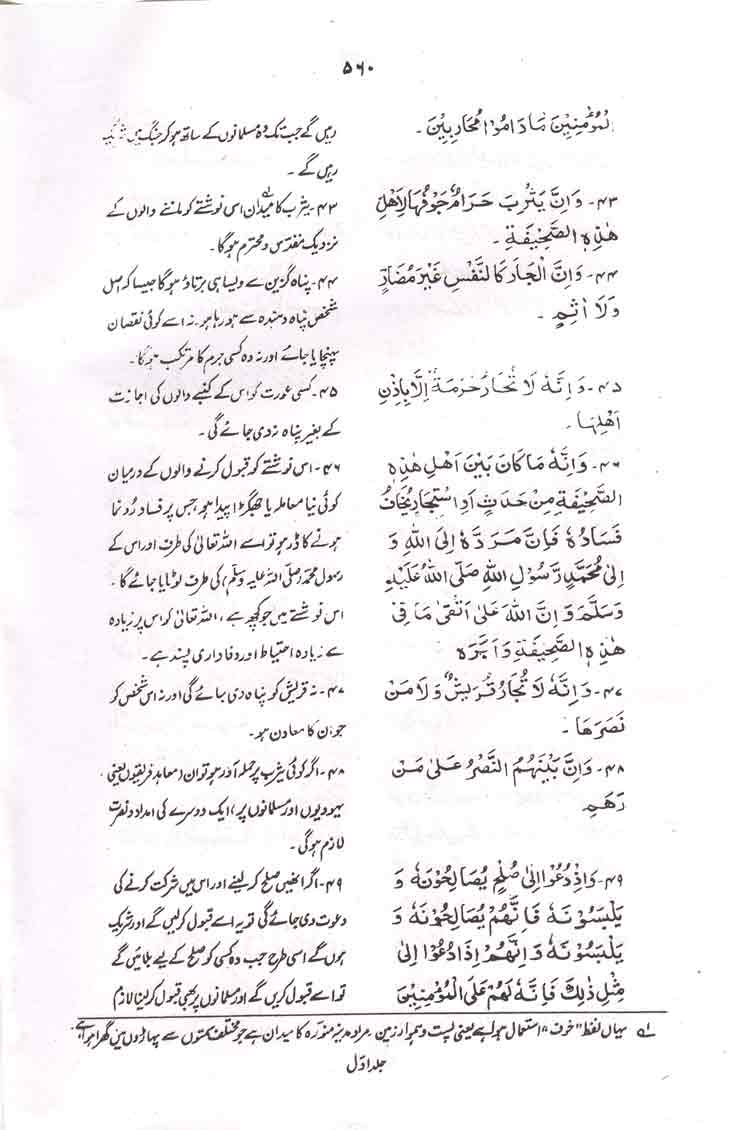 ۵۶۰
لمُؤمِنِينَ مَادَامُوا مُحَارِبِيْنَ -
۴۳- وَاِنَّ يَثْرِبَ حَرَامٌ جَوْفُهَا لِاَهْلِ
هٰذِهِ الصَّحِيْفَةِ -
۴۴- وَاِنَّ الْجَارَ كَالنَّفْسِ غَيْرَ مُضَارٍّ
وَلَا اٰثِمٍ -
۴۵- وَاِنَّهٗ لَا تُجَارُ حُرْمَةٌ اِلَّا بِاِذْنِ
اَهْلِهَا -
۴۶- وَاِنَّهٗ مَا كَانَ بَيْنَ اَهْلِ هٰذِهِ
الصَّحِيْفَةِ مِنْ حَدَثٍ اَوِ اسْتِجَارٍ يُخَافُ
فَسَادُهٗ فَاِنَّ مَرَدَّهٗ اِلَى اللهِ وَ
اِلٰى مُحَمَّدٍ رَّسُوْلِ اللهِ صَلَّى اللهُ عَلَيْهِ
وَسَلَّمَ وَاِنَّ اللهَ عَلٰى اَتْقٰى مَا فِى
هٰذِهِ الصَّحِيْفَةِ وَاَبَرِّهٖ
۴۷- وَاِنَّهٗ لَا تُجَارُ قُرَيْشٌ وَلَا مَنْ
نَصَرَهَا -
۴۸- وَاِنَّ بَيْنَهُمُ النَّصْرُ عَلٰى مَنْ
دَهَمَ
۴۹- وَاِذْ دُعُوْا اِلٰى صُلْحٍ يُصَالِحُوْنَهٗ وَ
يَلْبَسُوْنَهٗ فَاِنَّهُمْ يُصَالِحُوْنَهٗ وَ
يَلْبَسُوْنَهٗ وَاِنَّهُمْ اِذَا دُعُوْا اِلٰى
مِثْلِ ذٰلِكَ فَاِنَّهٗ لَهُمْ عَلَى الْمُؤْمِنِيْنَ
رہیں گے جب تک وہ مسلمانوں کے ساتھ ہو کر جنگ میں شریک
رہیں گے -
۴۳- یثرب کا میدان لہ اس نوشتے کو ماننے والوں کے
نزدیک مقدس و محترم ہوگا۔
۴۴- پناہ گزین سے ویسا ہی برتاؤ ہوگا جیسا کہ اصل
شخص پناہ دہندہ سے ہو رہا ہو۔ نہ اسے کوئی نقصان
پہنچایا جائے اور نہ وہ کسی جرم کا مرتکب ہوگا۔
۴۵- کسی عورت کو اس کے کنبے والوں کی اجازت
کے بغیر پناہ نہ دی جائے گی۔
۴۶- اس نوشتے کو قبول کرنے والوں کے درمیان
کوئی نیا معاملہ یا جھگڑا پیدا ہو، جس پر فساد رونما
ہونے کا ڈر ہو تو اسے اللہ تعالیٰ کی طرف اور اس کے
رسول محمد (صلی اللہ علیہ وسلم) کی طرف لوٹایا جائے گا۔
اس نوشتے میں جو کچھ ہے، اللہ تعالیٰ کو اس پر زیادہ
سے زیادہ احتیاط اور وفاداری پسند ہے۔
۴۷- نہ قریش کو پناہ دی جائے گی اور نہ اس شخص کو
جو ان کا معاون ہو۔
۴۸- اگر کوئی یثرب پر حملہ آور ہو تو ان (معاہد فریقوں یعنی
یہودیوں اور مسلمانوں) پر، ایک دوسرے کی امداد و نصرت
لازم ہوگی۔
۴۹- اگر انھیں صلح کر لینے اور اس میں شرکت کرنے کی
دعوت دی جائے گی تو یہ اسے قبول کرلیں گے اور شریک
ہوں گے اسی طرح جب وہ کسی کو صلح کے لیے بلائیں گے
تو اسے قبول کریں گے اور مسلمانوں پر بھی قبول کر لینا لازم
لہ یہاں لفظ "خوف" استعمال ہوا ہے یعنی پست و ہموار زمین۔ مراد مدینہ منورہ کا میدان ہے جو مختلف سمتوں سے پہاڑوں میں گھرا ہوا ہے۔
جلد اول